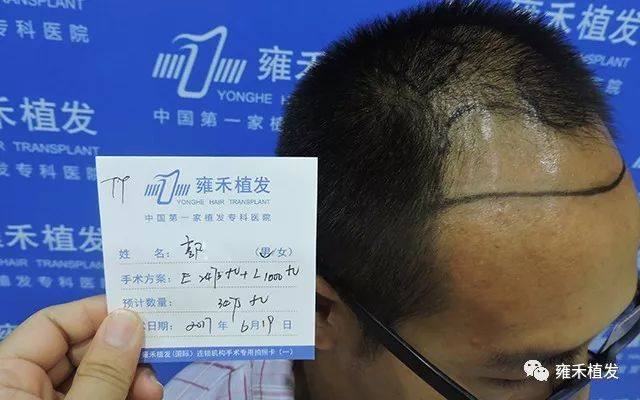 专科医院
雍禾植发
YONGHE HAIR TRANSPLANT
中国第一家植发
雍禾植发
YONGHE HAIR TRANSPLANT
中国第一家植发专科医院
姓 名: (男/女)
手术方案: E 2475 FU + L 1000 FU
预计数量: 3475 FU
术日期: 2017 年 6 月 19 日
雍禾植发(国际)连锁机构手术专用拍照卡(一)
雍禾植发